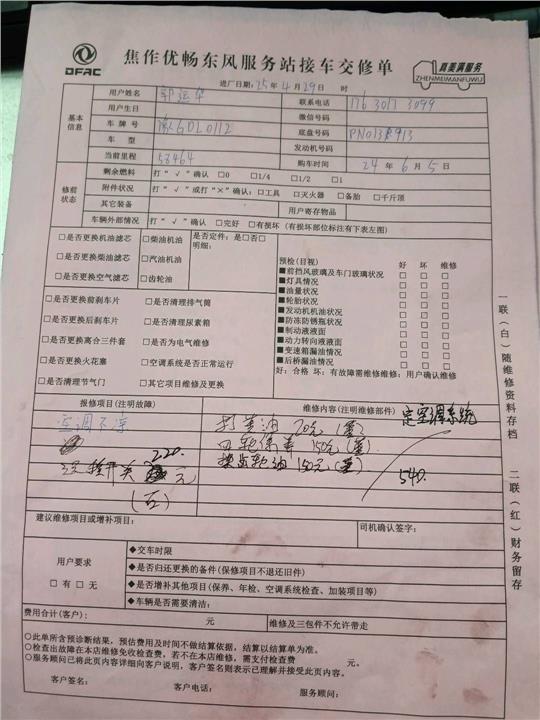 DFAC
焦作优畅东风服务站接车交修单
真美满服务
ZHENMEIMANFUWU
进厂日期：25年4月29日 时
基本信息
用户姓名
联系电话 176 3017 3099
用户生日
微信号码
车牌号 豫GDL0112
底盘号码
车型
发动机号码
当前里程 58464
购车时间 24年6月5日
修前状态
剩余燃料 打“√”确认 □0 □1/4 □1/2 □1
附件状况 打“√”或打“×”确认：□工具 □灭火器 □备胎 □千斤顶
其它装备
用户寄存物品
车辆外部情况 打“√”确认 □完好 □有损坏（有损坏部位标注有下表左图）
□是否更换机油滤芯 □柴油机油 是否定件：是□否□
明细：
□是否更换柴油滤芯 □汽油机油
□是否更换空气滤芯 □齿轮油
□是否更换前刹车片 □是否清理排气筒
□是否更换后刹车片 □是否清理尿素箱
□是否更换离合三件套 □是否为电气维修
□是否更换火花塞 □空调系统是否正常运行
□是否清理节气门 □其它项目维修及更换
预检（目视） 好 坏 维修
■前挡风玻璃及车门玻璃状况 □ □ □
■灯具情况 □ □ □
■油量状况 □ □ □
■轮胎状况 □ □ □
■发动机机油状况 □ □ □
■防冻防锈瓶状况 □ □ □
■制动液液面 □ □ □
■动力转向液液面 □ □ □
■变速箱漏油情况 □ □ □
■后桥漏油情况 □ □ □
好：合格 坏：有故障需维修维修：用户确认维修
报修项目（注明故障）
维修内容（注明维修部件）
空调不凉
打黄油 70元
四轮保养 150元
220
元
换齿轮油 150元
540.
建议维修项目或增补项目：
司机确认签字：
用户要求
□有 □无
◆交车时限
◆是否归还更换的备件（保修项目不退还旧件）
◆是否增补其他项目（保养、年检、空调系统检查、加装项目等）
◆车辆是否需要清洁：
费用合计（客户）： 元
维修及三包件不允许带走
○此单所含预诊断结果，预估费用及时间不做结算依据，结算以结算单为准。
○检查出故障在本店维修免收检查费，若不在本店维修，需支付检查费 元。
○服务顾问已将此页内容详细向客户说明，客户签名则表示已理解并接受此页内容。
客户签名： 客户电话： 服务顾问：
一联（白）随维修资料存档
二联（红）财务留存